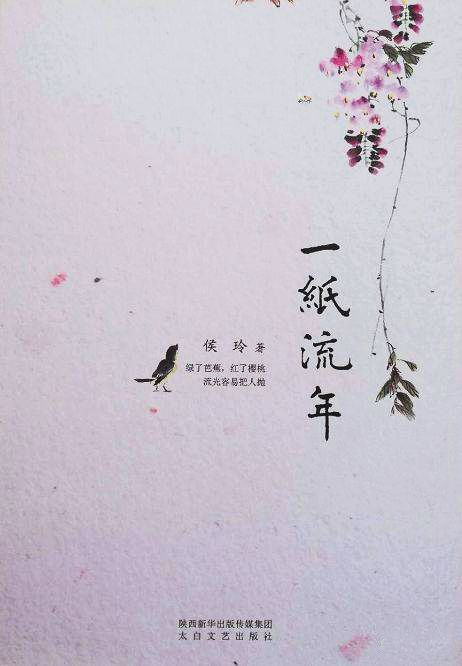 一紙流年
侯玲 著
绿了芭蕉，红了樱桃
流光容易把人抛
陕西新华出版传媒集团
太白文艺出版社